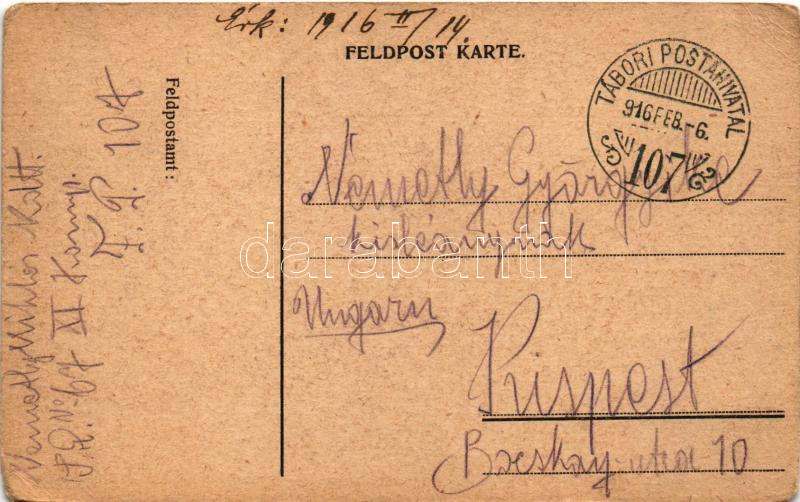 Érk: 1916 II/14.
FELDPOST KARTE.
TÁBORI POSTAHIVATAL
916 FEB.-6.
107
Feldpostamt:
Nemethy Miklós
I.R. No 67 XI Komp.
F. P. 107
Némethy Györgyike
kisleánynak
Ungarn
Kispest
Bocskay-utca 10
darabanth